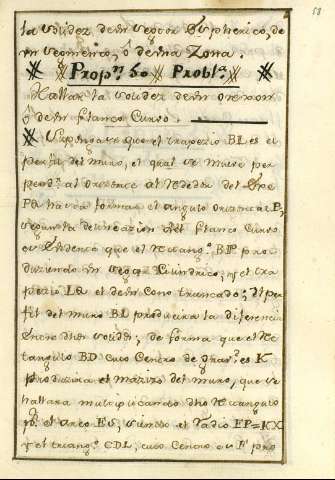 58
la solidez de un sector Espherico, de
un segmento, ó de una Zona.
Propn. 50 Probla.
Hallar la solidez de un orexon
ó de un flanco Curvo.
Supongase que el trapezio BL es el
perfil del muro, el qual se mueve per
pend.r al orizonte al rededor del
PQ hasta formar el angulo orizontal P,
segun la delineacion del flanco Curvo
es evidente que el rectang.o BP pro
duzira un Cilindrico; y el tra
pezio LQ el de un Cono truncado; el per
fil del muro BL produzira la diferencia
solidos; de forma que el Rec
tangulo BD cuio Centro de grav.d es K
produzira el mazizo del muro, que se
hallara multiplicando dho Rectangulo
p.r el arco ES, siendo el radio EP=KX
y el triang.o CDL, cuio Centro es F pro